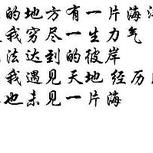 的地方有一片海
我穷尽一生力气
法达到的彼岸
我遇见天地经历
也未见一片海